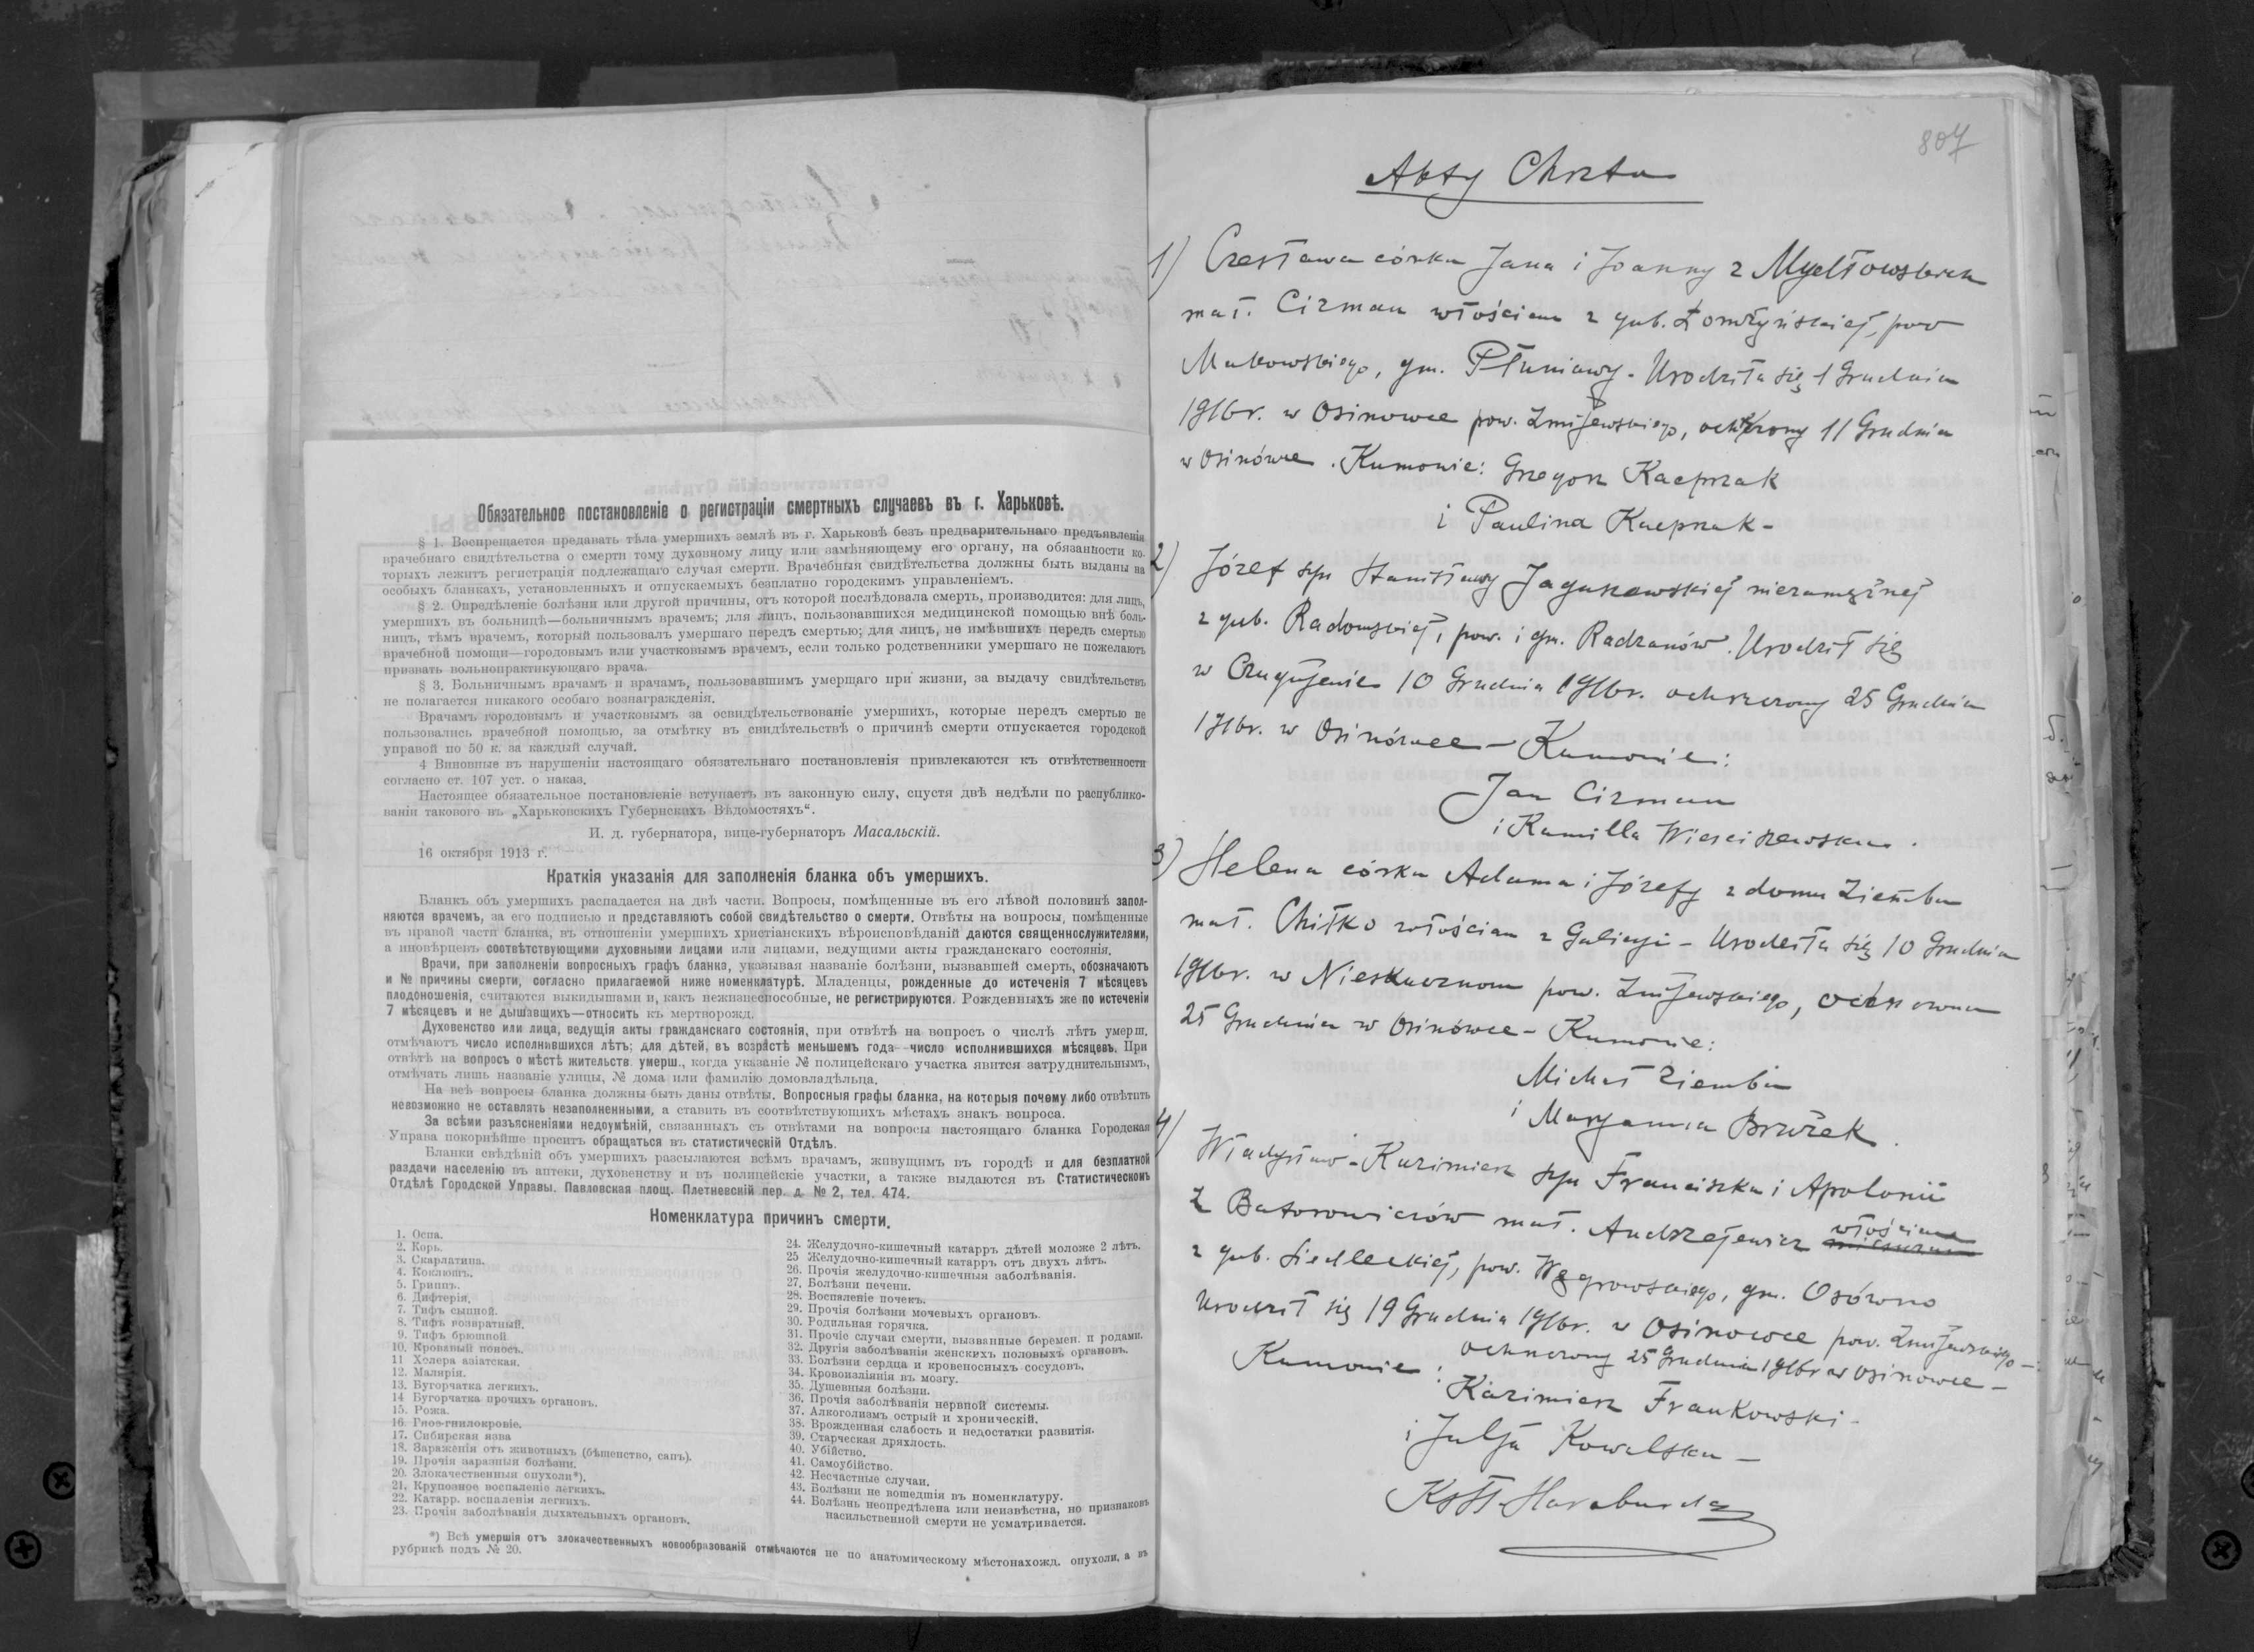 Обязательное постановленіе о регистраціи смертныхъ случаевъ въ г. Харьковѣ.
§ 1. Воспрещается предавать тѣла умершихъ землѣ въ г. Харьковѣ безъ предварительнаго предъявленія
врачебнаго свидѣтельства о смерти тому духовному лицу или замѣняющему его органу, на обязанности ко-
торыхъ лежитъ регистрація подлежащаго случая смерти. Врачебныя свидѣтельства должны быть выданы на
особыхъ бланкахъ, установленныхъ и отпускаемыхъ безплатно городскимъ управленіемъ.
§ 2. Опредѣленіе болѣзни или другой причины, отъ которой послѣдовала смерть, производится: для лицъ,
умершихъ въ больницѣ—больничнымъ врачемъ; для лицъ, пользовавшихся медицинской помощью внѣ боль-
ницъ, тѣмъ врачемъ, который пользовалъ умершаго передъ смертью; для лицъ, не имѣвшихъ передъ смертью
врачебной помощи—городовымъ или участковымъ врачемъ, если только родственники умершаго не пожелаютъ
призвать вольнопрактикующаго врача.
§ 3. Больничнымъ врачамъ и врачамъ, пользовавшимъ умершаго при жизни, за выдачу свидѣтельствъ
не полагается никакого особаго вознагражденія.
Врачамъ городовымъ и участковымъ за освидѣтельствованіе умершихъ, которые передъ смертью не
пользовались врачебной помощью, за отмѣтку въ свидѣтельствѣ о причинѣ смерти отпускается городской
управой по 50 к. за каждый случай.
4 Виновные въ нарушеніи настоящаго обязательнаго постановленія привлекаются къ отвѣтственности
согласно ст. 107 уст. о наказ.
Настоящее обязательное постановленіе вступаетъ въ законную силу, спустя двѣ недѣли по распублико-
ваніи такового въ „Харьковскихъ Губернскихъ Вѣдомостяхъ“.
И. д. губернатора, вице-губернаторъ Масальскій.
16 октября 1913 г.
Краткія указанія для заполненія бланка объ умершихъ.
Бланкъ объ умершихъ распадается на двѣ части. Вопросы, помѣщенные въ его лѣвой половинѣ запол-
няются врачемъ, за его подписью и представляютъ собой свидѣтельство о смерти. Отвѣты на вопросы, помѣщенные
въ правой части бланка, въ отношеніи умершихъ христіанскихъ вѣроисповѣданій даются священнослужителями,
а иновѣрцевъ соотвѣтствующими духовными лицами или лицами, ведущими акты гражданскаго состоянія.
Врачи, при заполненіи вопросныхъ графъ бланка, указывая названіе болѣзни, вызвавшей смерть, обозначаютъ
и № причины смерти, согласно прилагаемой ниже номенклатурѣ. Младенцы, рожденные до истеченія 7 мѣсяцевъ
плодоношенія, считаются выкидышами и, какъ нежизнеспособные, не регистрируются. Рожденныхъ же по истеченіи
7 мѣсяцевъ и не дышавщихъ—относить къ мертворожд.
Духовенство или лица, ведущія акты гражданскаго состоянія, при отвѣтѣ на вопросъ о числѣ лѣтъ умерш.
отмѣчаютъ число исполнившихся лѣтъ; для дѣтей, въ возрастѣ меньшемъ года—число исполнившихся мѣсяцевъ. При
отвѣтѣ на вопросъ о мѣстѣ жительств. умерш., когда указаніе № полицейскаго участка явится затруднительнымъ,
отмѣчать лишь названіе улицы, № дома или фамилію домовладѣльца.
На всѣ вопросы бланка должны быть даны отвѣты. Вопросныя графы бланка, на которыя почему либо отвѣтить
невозможно не оставлять незаполненными, а ставить въ соотвѣтствующихъ мѣстахъ знакъ вопроса.
За всѣми разъясненіями недоумѣній, связанныхъ съ отвѣтами на вопросы настоящаго бланка Городская
Управа покорнѣйше проситъ обращаться въ статистическій Отдѣлъ.
Бланки свѣдѣній объ умершихъ разсылаются всѣмъ врачамъ, живущимъ въ городѣ и для безплатной
раздачи населенію въ аптеки, духовенству и въ полицейскіе участки, а также выдаются въ Статистическомъ
Отдѣлѣ Городской Управы. Павловская площ. Плетневскій пер. д. № 2, тел. 474.
Номенклатура причинъ смерти.
1. Оспа.
2. Корь.
3. Скарлатина.
4. Коклюшъ.
5. Гриппъ.
6. Дифтерія.
7. Тифъ сыпной.
8. Тифъ возвратный.
9. Тифъ брюшной
10. Кровавый поносъ.
11 Холера азіатская.
12. Малярія.
13. Бугорчатка легкихъ.
14 Бугорчатка прочихъ органовъ.
15. Рожа.
16. Гное-гнилокровіе.
17. Сибирская язва
18. Зараженія отъ животныхъ (бѣшенство, сапъ).
19. Прочія заразныя болѣзни.
20. Злокачественныя опухоли*).
21. Крупозное воспаленіе легкихъ.
22. Катарр. воспаленія легкихъ.
23. Прочія заболѣванія дыхательныхъ органовъ.
24. Желудочно-кишечный катарръ дѣтей моложе 2 лѣтъ.
25 Желудочно-кишечный катарръ отъ двухъ лѣтъ.
26. Прочія желудочно-кишечныя заболѣванія.
27. Болѣзни печени.
28. Воспаленіе почекъ.
29. Прочія болѣзни мочевыхъ органовъ.
30. Родильная горячка.
31. Прочіе случаи смерти, вызванные беремен. и родами.
32. Другія заболѣванія женскихъ половыхъ органовъ.
33. Болѣзни сердца и кровеносныхъ сосудовъ.
34. Кровоизліянія въ мозгу.
35. Душевныя болѣзни.
36. Прочія заболѣванія нервной системы.
37. Алкоголизмъ острый и хроническій.
38. Врожденная слабость и недостатки развитія.
39. Старческая дряхлость.
40. Убійство.
41. Самоубійство.
42. Несчастные случаи.
43. Болѣзни не вошедшія въ номенклатуру.
44. Болѣзнь неопредѣлена или неизвѣстна, но признаковъ
насильственной смерти не усматривается.
*) Всѣ умершія отъ злокачественныхъ новообразованій отмѣчаются не по анатомическому мѣстонахожд. опухоли, а въ
рубрикѣ подъ № 20.
807
Akty Chrztu
1) Czesława córka Jana i Joanny z
mał. Cizman włościan z gub. Łomżyńskiej, pow
Makowskiego, gm. Płoniawy - Urodziła się 1 Grudnia
1916 r. w Osinowce pow. Zmijewskiego, 11 Grudnia
w Osinówce. Kumowie: Grzegorz Kacprzak
i Paulina Kacprzak -
2) Józef syn Stanisławy niezamężnej
z gub. Radomskiej, pow. i gm. Radzanów. Urodził się
w Czugujewie 10 Grudnia 1916 r. ochrzczony 25 Grudnia
1916 r. w Osinówce - Kumowie:
Jan Cizman
i Kamilla Wieciszewska.
3) Helena córka Adama i Józefy z domu Ziemba
mał. Chitko włościan z Galicyi - Urodziła się 10 Grudnia
1916 r. w Nieskucznom pow. Zmijewskiego, ochrzczona
25 Grudnia w Osinówce - Kumowie:
Michał Ziemba
i Maryanna Brużek.
4) Władysław-Kazimierz syn Franciszka i Apolonii
z Batorowiczów mał. Andrzejewicz włościan
z gub. Siedleckiej, pow. Węgrowskiego, gm. Osówno
Urodził się 19 Grudnia 1916 r. w Osinowce pow. Zmijewskiego -
ochrzczony 25 Grudnia 1916 r w Osinowce -
Kumowie: Kazimierz Frankowski -
i Julja Kowalska -
Ks St. Haraburda